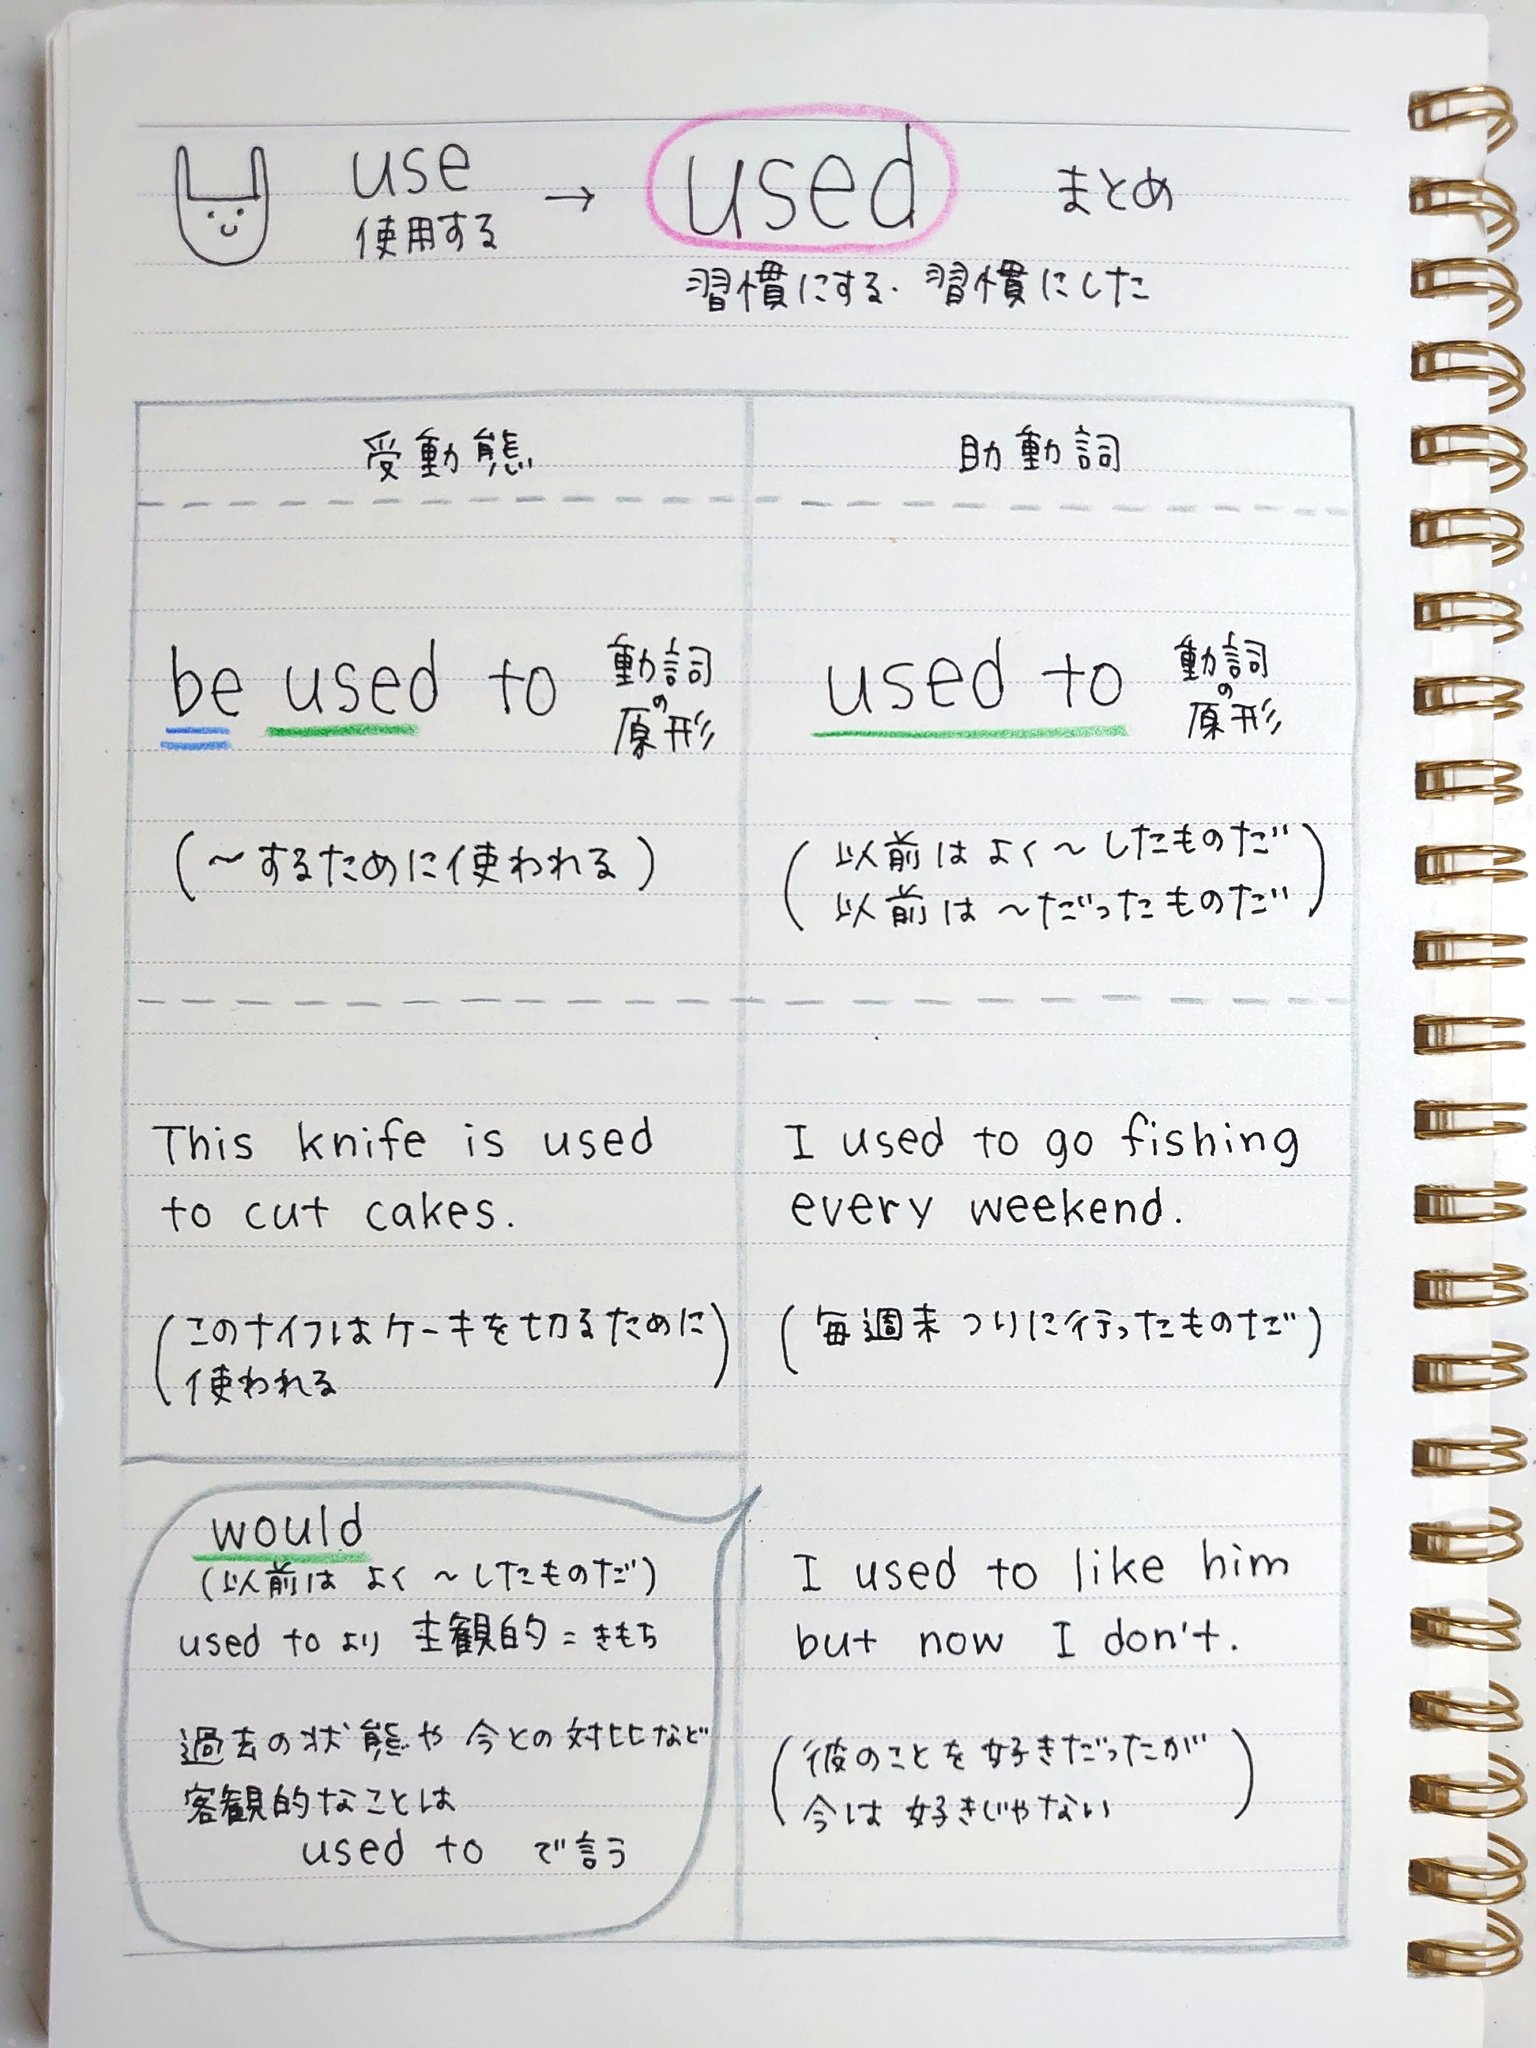 use → used まとめ
使用する
習慣にする・習慣にした
受動態
be used to 動詞の原形
(～するために使われる)
This knife is used
to cut cakes.
(このナイフはケーキを切るために
使われる)
would
(以前は よく ～したものだ)
used to より 主観的 = きもち
過去の状態や 今との対比など
客観的なことは
used to で言う
助動詞
used to 動詞の原形
(以前は よく ～したものだ
以前は ～だったものだ)
I used to go fishing
every weekend.
(毎週末 つりに行ったものだ)
I used to like him
but now I don't.
(彼のことを好きだったが
今は 好きじゃない)